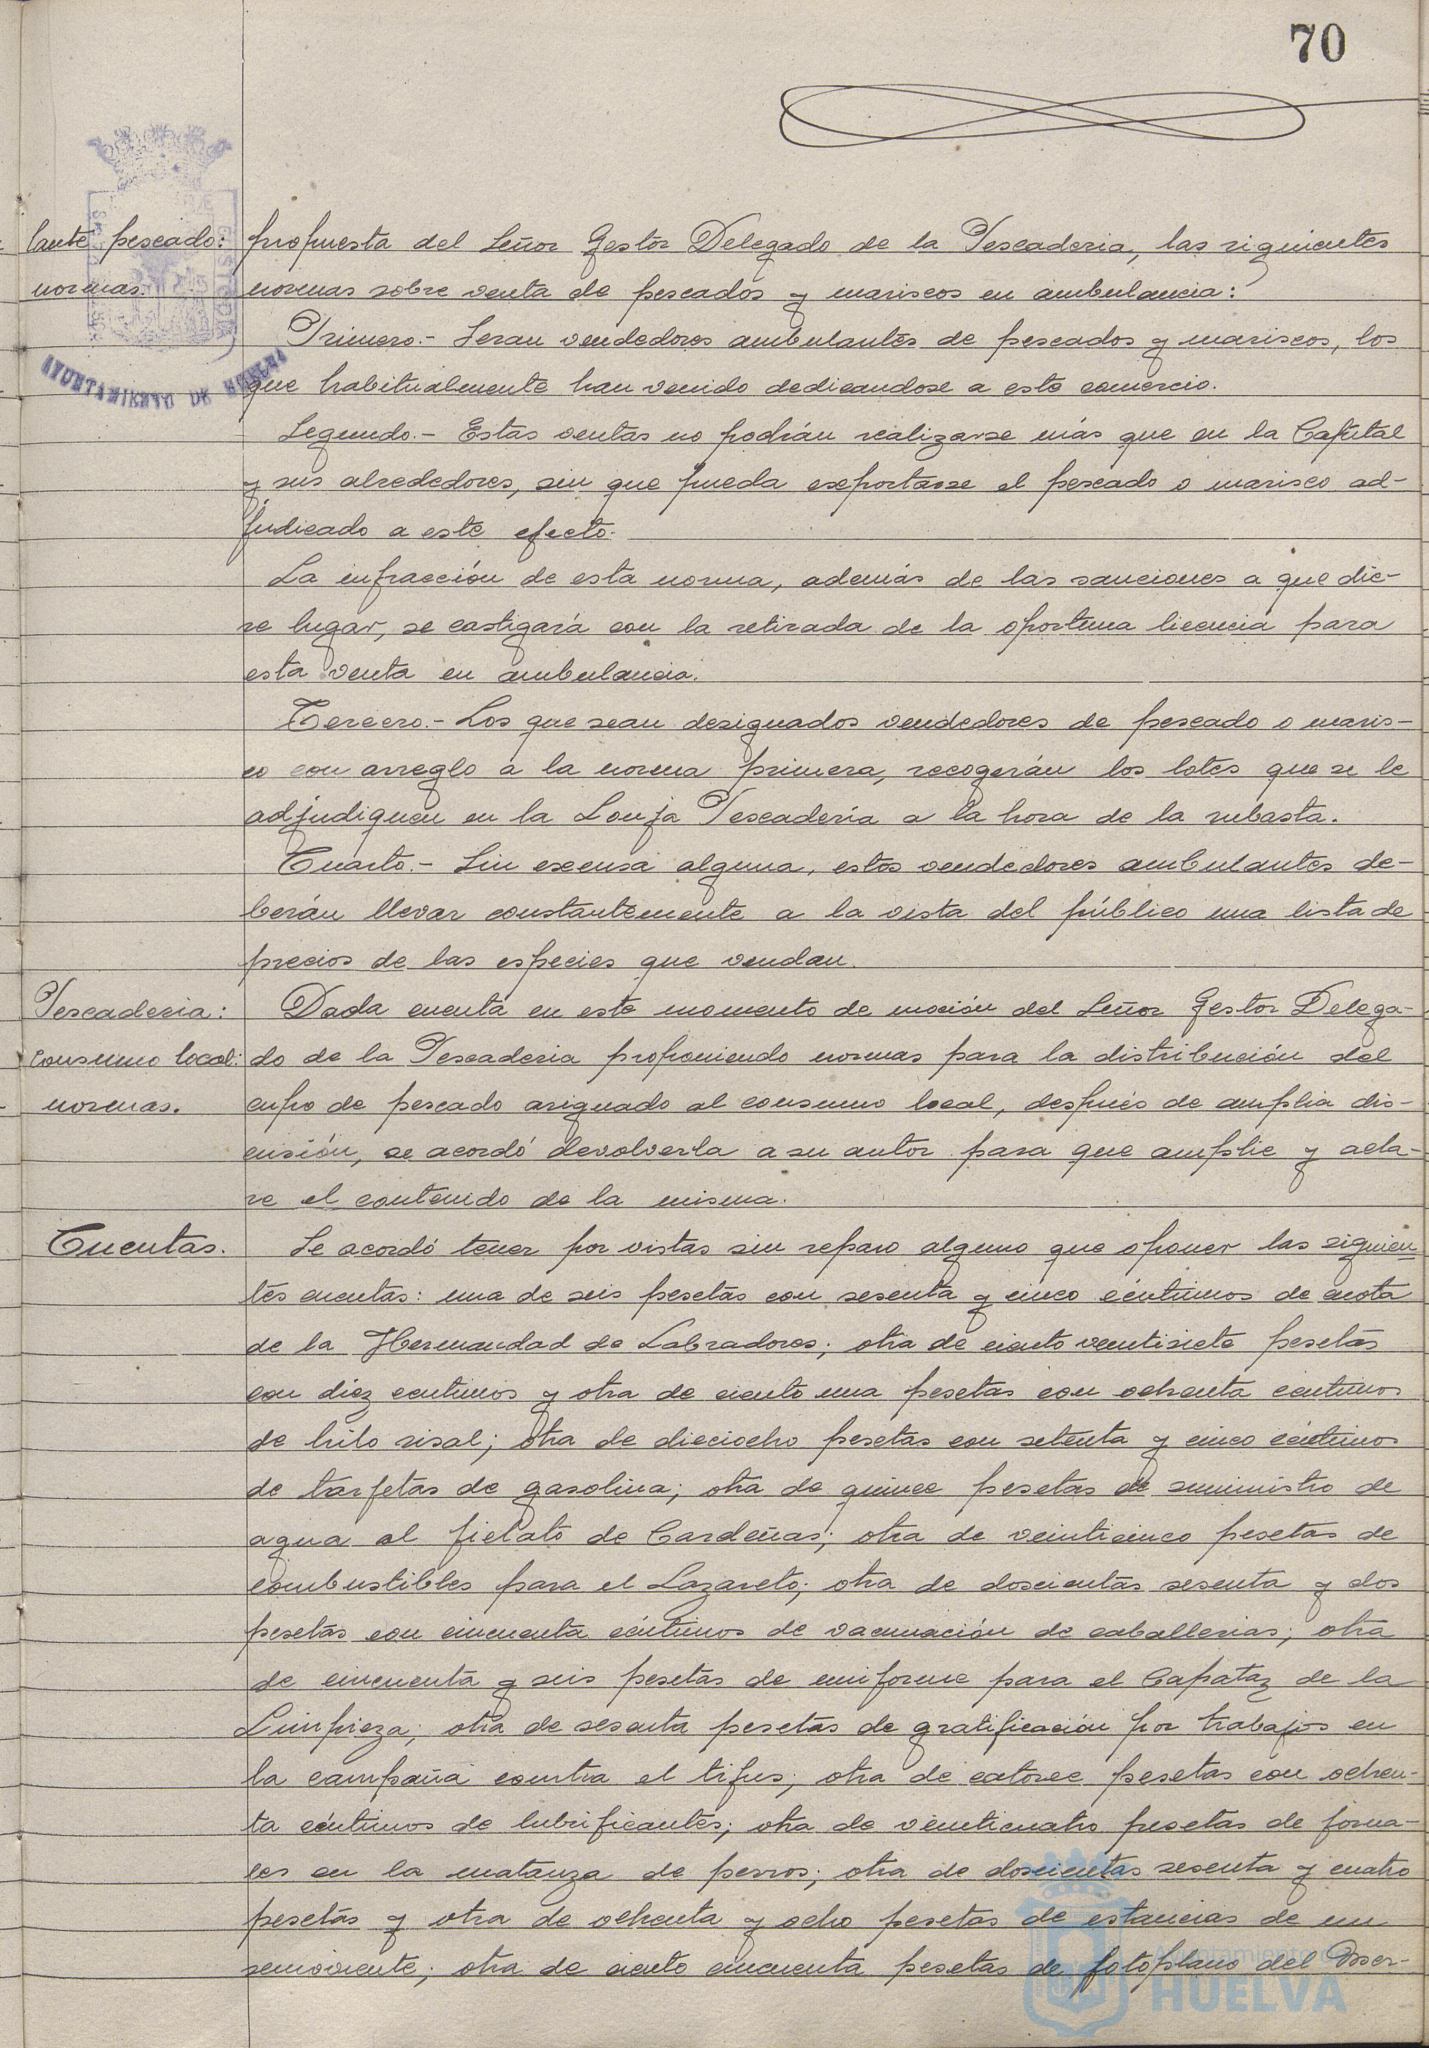 70
lante pescado: propuesta del Señor Gestor Delegado de la Pescaderia, las siguientes
normas. normas sobre venta de pescados y mariscos en ambulancia:
Primero.- Seran vendedores ambulantes de pescados y mariscos, los
que habitualmente han venido dedicandose a este comercio.
Segundo.- Estas ventas no podrán realizarse más que en la Capital
y sus alrededores, sin que pueda exportarse el pescado o marisco ad-
judicado a este efecto.
La infracción de esta norma, además de las sanciones a que die-
re lugar, se castigará con la retirada de la oportuna licencia para
esta venta en ambulancia.
Tercero.- Los que sean designados vendedores de pescado o maris-
co con arreglo a la norma primera, recogerán los lotes que se le
adjudiquen en la Lonja Pescadería a la hora de la subasta.
Cuarto.- Sin excusa alguna, estos vendedores ambulantes de-
berán llevar constantemente a la vista del público una lista de
precios de las especies que vendan.
Pescaderia: Dada cuenta en este momento de moción del Señor Gestor Delega-
consumo local: do de la Pescaderia proponiendo normas para la distribución del
normas. cupo de pescado asignado al consumo local, después de amplia dis-
cusión, se acordó devolverla a su autor para que amplie y acla-
re el contenido de la misma.
Cuentas. Se acordó tener por vistas sin reparo alguno que oponer las siguien-
tes cuentas: una de seis pesetas con sesenta y cinco céntimos de cuota
de la Hermandad de Labradores; otra de ciento veintisiete pesetas
con diez centimos y otra de ciento una pesetas con ochenta centimos
de hilo sisal; otra de dieciocho pesetas con setenta y cinco céntimos
de tarjetas de gasolina; otra de quince pesetas de suministro de
agua al fielato de Cardeñas; otra de veinticinco pesetas de
combustibles para el Lazareto; otra de doscientas sesenta y dos
pesetas con cincuenta céntimos de vacunación de caballerias; otra
de cincuenta y seis pesetas de uniforme para el Capataz de la
Limpieza; otra de sesenta pesetas de gratificación por trabajos en
la campaña contra el tifus; otra de catorce pesetas con ochen-
ta céntimos de lubrificantes; otra de veinticuatro pesetas de jorna-
les en la matanza de perros; otra de doscientas sesenta y cuatro
pesetas y otra de ochenta y ocho pesetas de estancias de un
semoviente; otra de ciento cincuenta pesetas de fotoplano del Mer-
AYUNTAMIENTO DE HUELVA
Ayuntamiento de
HUELVA